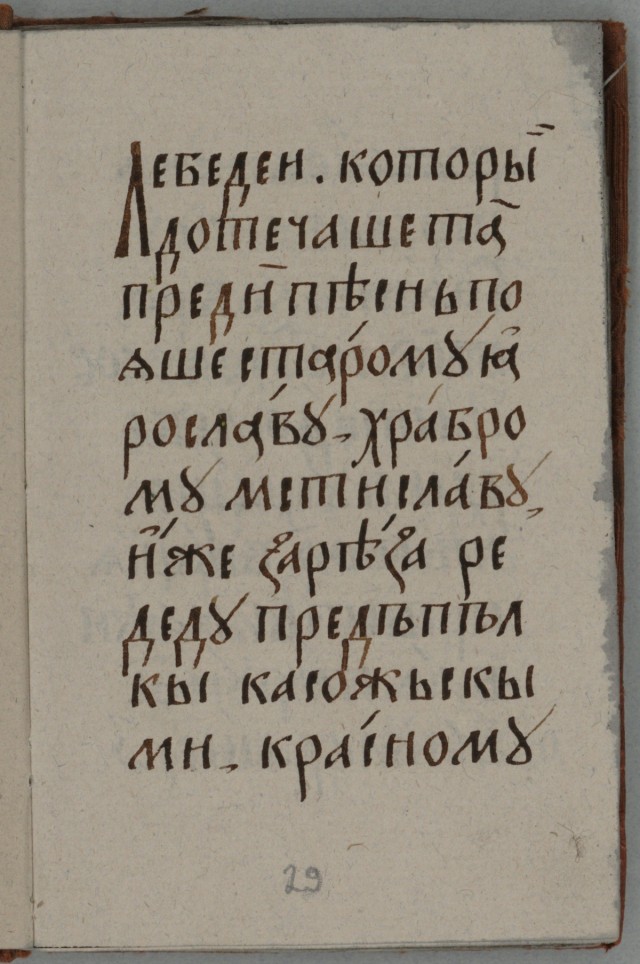 лебеден. которы҃
дотечашета҃
преди҃пѣсньпо
ѧшестаромуꙗ
рославꙋ. храбро
му мстиславꙋ,
и҆́же ꙁарѣ́ꙁа ре
дедꙋ предъпъл
кы касожьскы
ми. красномꙋ
29